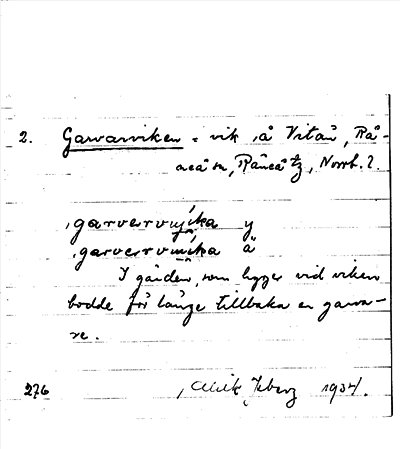 2. Garvarviken = vik å Vitån, Rå-
neå sn, Råneå tg, Norrb. l.
garvervyika y
garvervuika ä
I gården, som ligger vid viken
bodde för länge tillbaka en garva-
re.
276 1934.